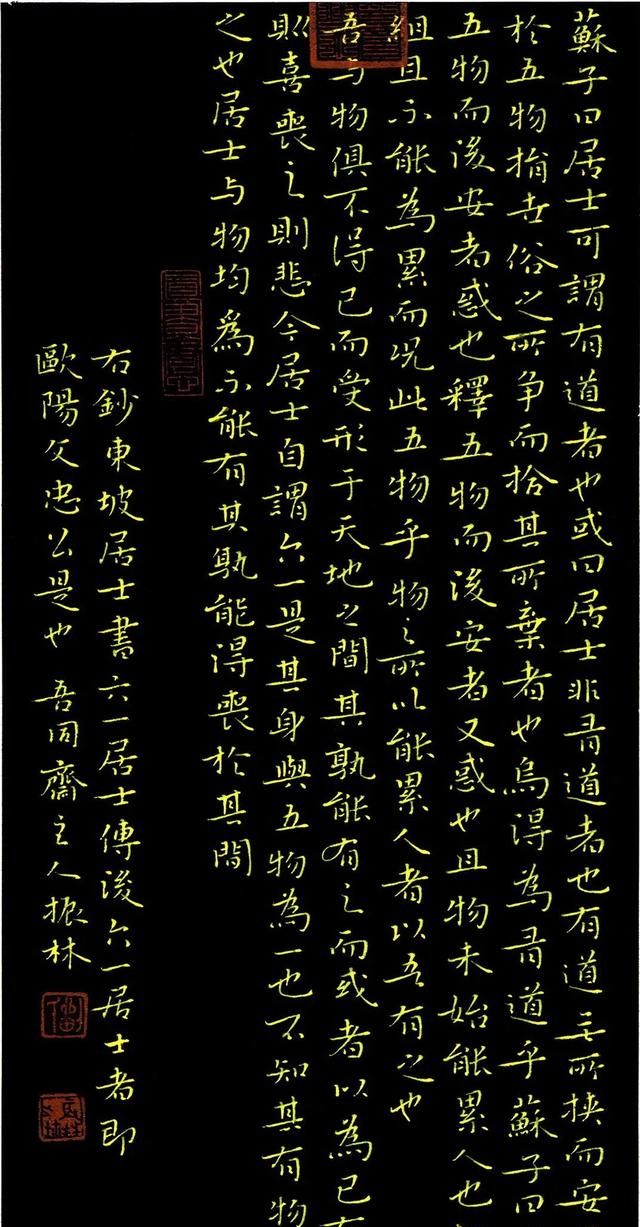 蘇子曰居士可謂有道者也或曰居士非有道者也有道無所挾而安
於五物捐世俗之所争而捨其所棄者也烏得為有道乎蘇子曰
五物而後安者惑也釋五物而後安者又惑也且物未始能累人也
組且不能為累而况此五物乎物之所以能累人者以吾有之也
吾与物俱不得已而受形于天地之間其孰能有之而或者以為已有
則喜喪之則悲今居士自謂六一是其身與五物為一也不知其有物
之也居士与物均爲不能有其孰能得喪於其間
右鈔東坡居士書六一居士傳後六一居士者即
歐陽文忠公是也 吾同齋主人振林